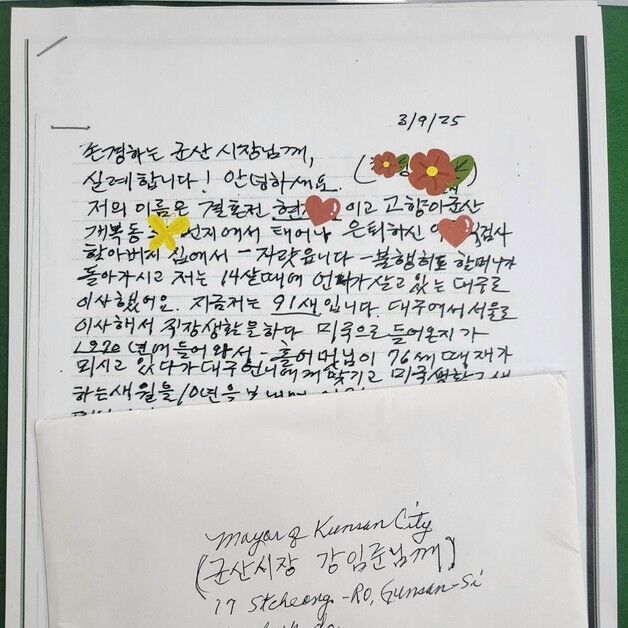 3/9/25
존경하는 군산 시장님께,
실례합니다! 안녕하세요. (
저의 이름은 결혼전 현 이고 고향아군산
개복동 선지에서 태어나 은퇴하신 검사
할아버지 집에서 - 자랏읍니다 - 불행히도 할머니가
돌아가시고 저는 14살때에 언니가 살고 있는 대구로
이사했어요. 지금저는 91세입니다. 대구에서 서울로
이사해서 직장생활을하다 미국으로 들어온지가
1970년에 들어와서 - 홀어머님이 76세 때 제가
모시고 있다가 대구언니에게 맡기고 미국
하는생활을 10년을
Mayor of Kunsan City
(군산시장 강임준님께)
17 Stcheong-Ro, Gunsan-Si